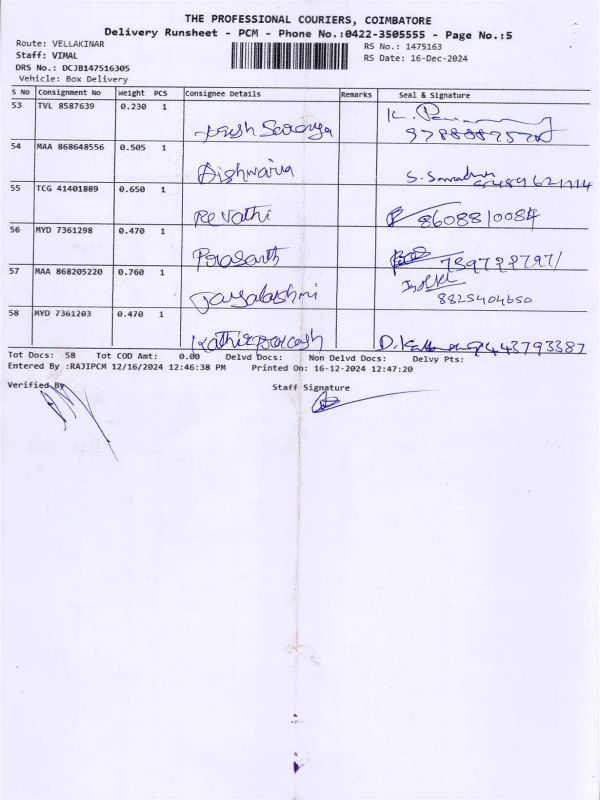 THE PROFESSIONAL COURIERS, COIMBATORE
Delivery Runsheet - PCM - Phone No.:0422-3505555 - Page No.:5
Route: VELLAKINAR
RS No.: 1475163
Staff: VIMAL
RS Date: 16-Dec-2024
DRS No.: DCJB147516305
Vehicle: Box Delivery
S No Consignment No Weight PCS Consignee Details Remarks Seal & Signature
53 TVL 8587639 0.230 1
54 MAA 868648556 0.505 1 Aishwarya
55 TCG 41401889 0.650 1 Revathi 8608810084
56 MYD 7361298 0.470 1 Prasanth
57 MAA 868205220 0.760 1 Jayalakshmi 8825404650
58 MYD 7361203 0.470 1 9443793387
Tot Docs: 58 Tot COD Amt: 0.00 Delvd Docs: Non Delvd Docs: Delvy Pts:
Entered By :RAJIPCM 12/16/2024 12:46:38 PM Printed On: 16-12-2024 12:47:20
Verified By Staff Signature